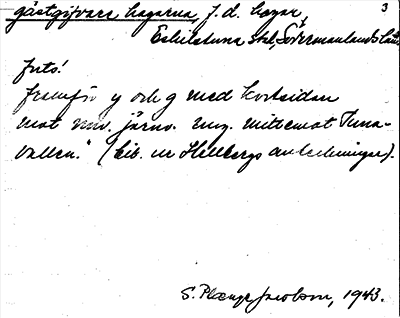 gästgifvare hagarna, f.d. hagar, 3
Eskilstuna stad, Södermanlands län.
Intö!
framför y och g med kortsidan
mot nuv. järnv. mitt emot Tuna-
vallen." (Cit. ur Hellbergs anteckningar).
S. Plænge Jacobson, 1943.